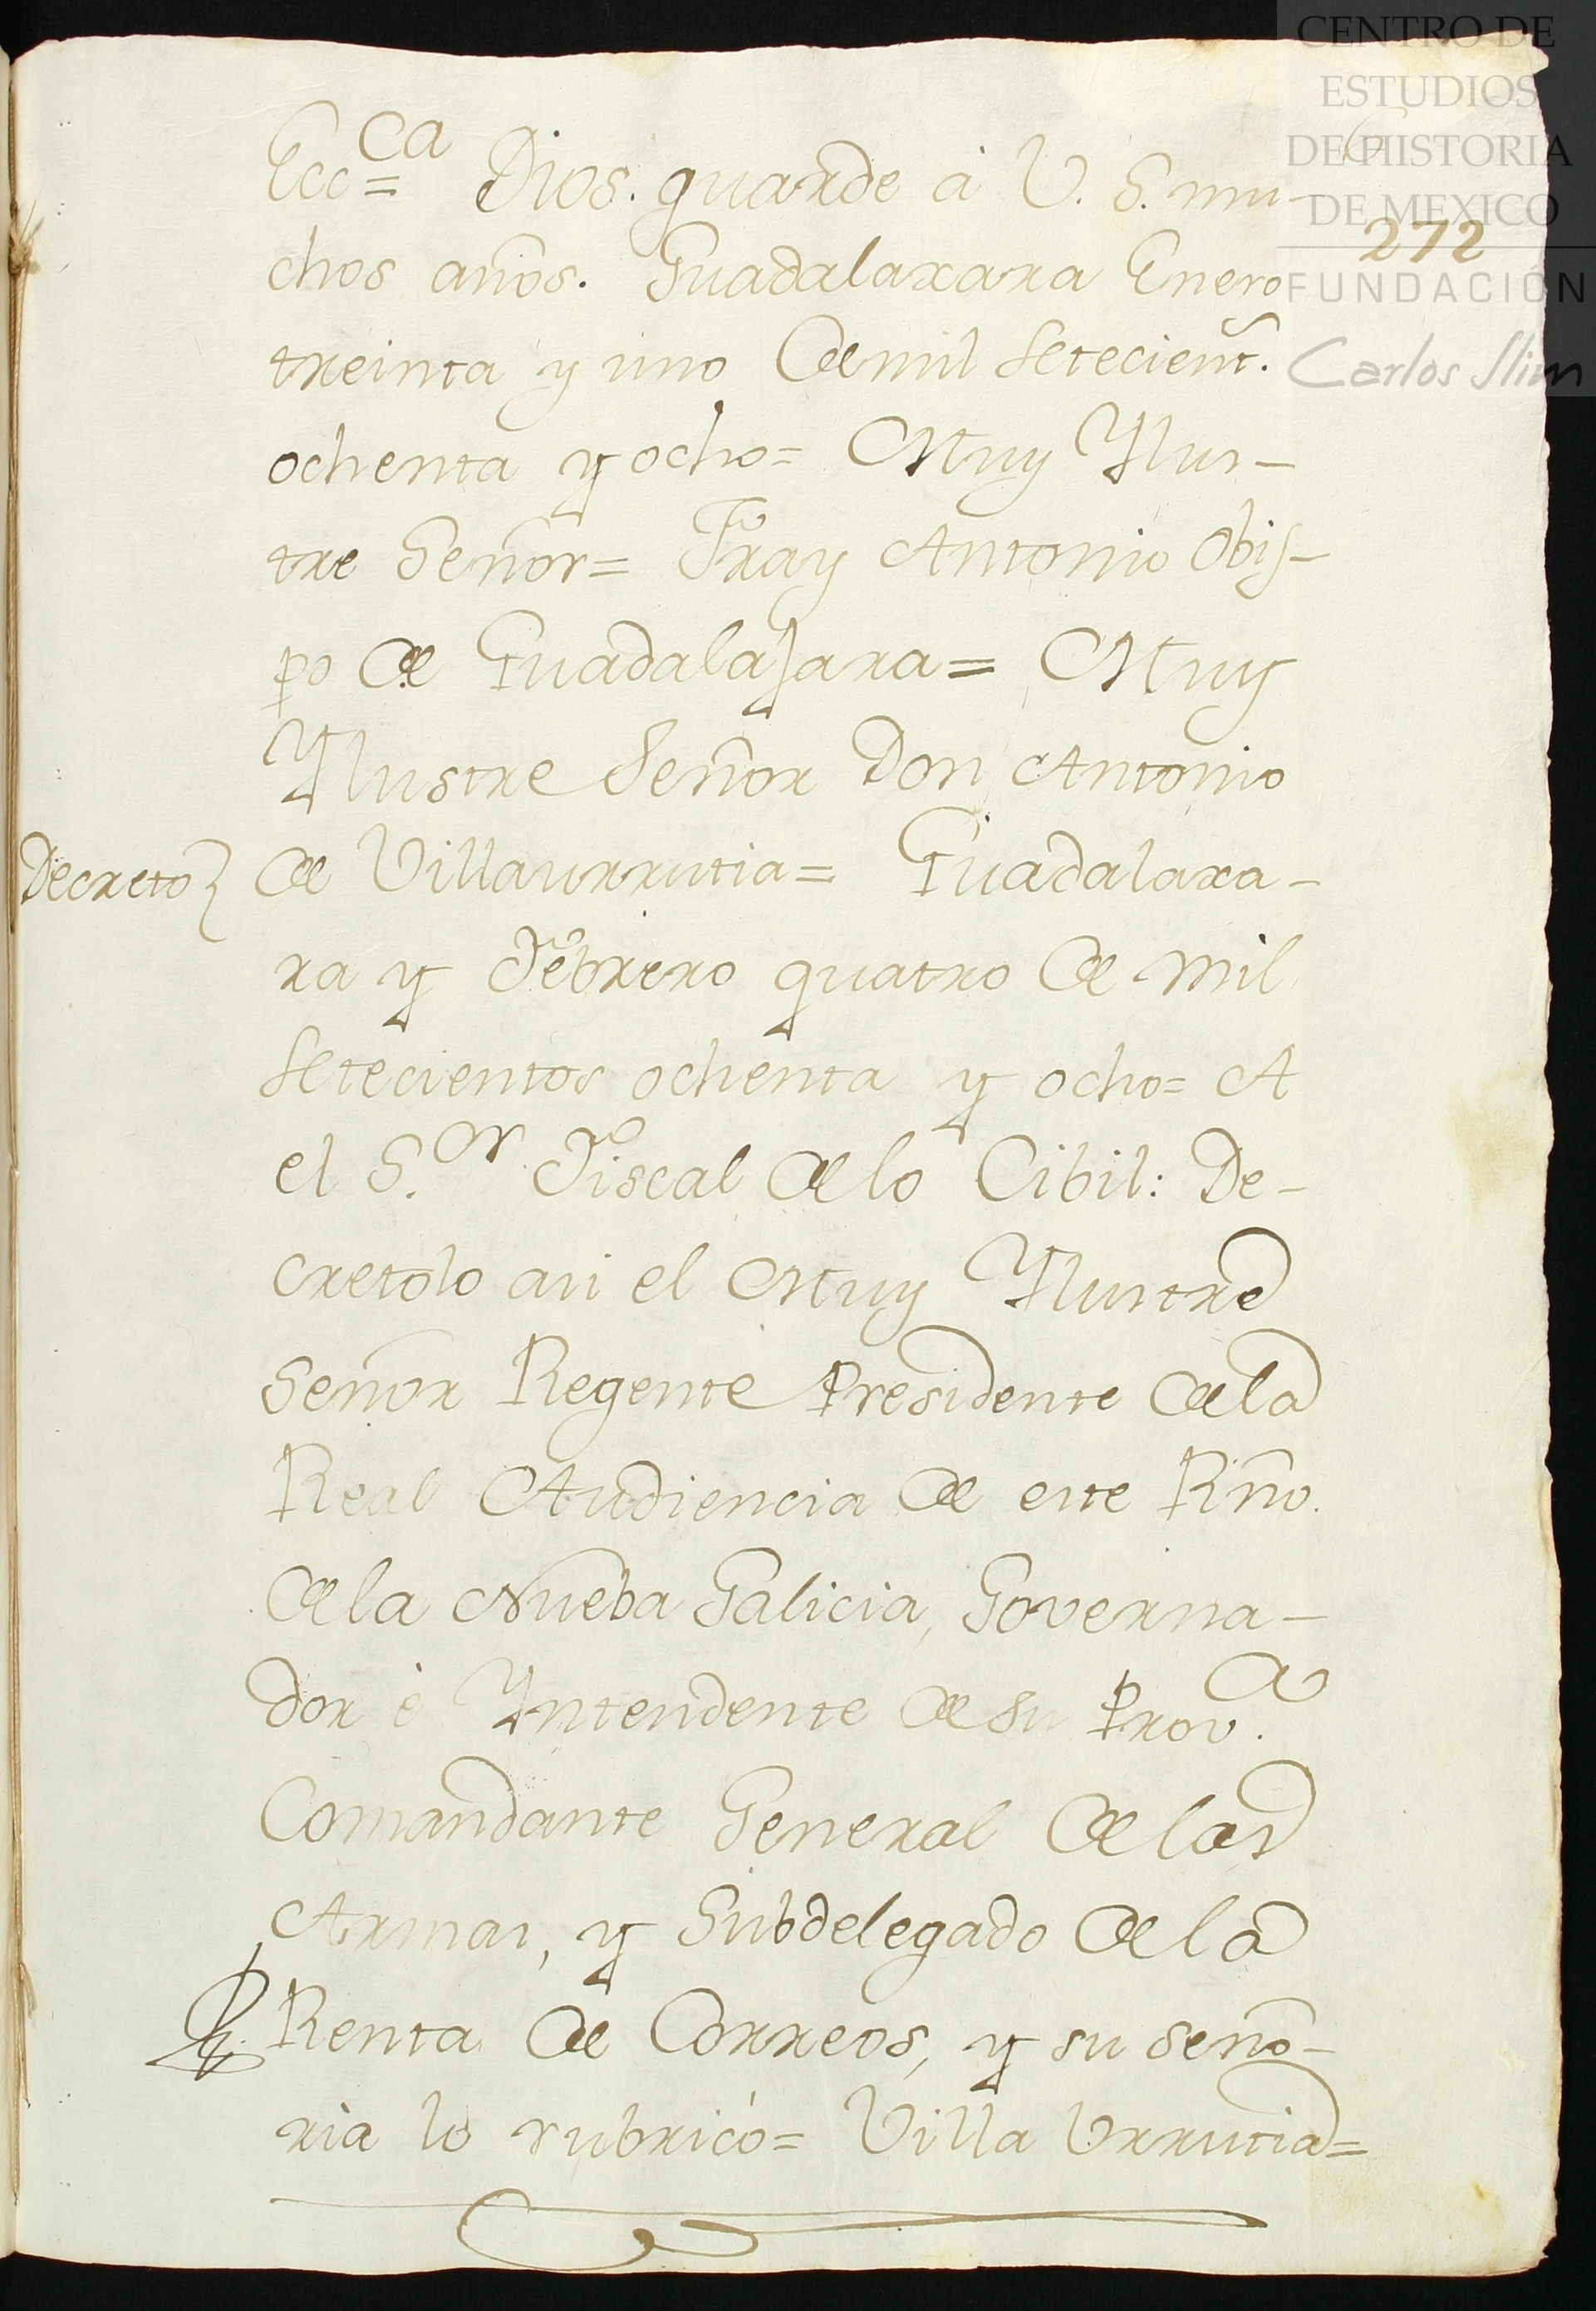 CENTRO DE
ESTUDIOS
DE HISTORIA
DE MEXICO
FUNDACIÓN
Carlos Slim
6
272
Ecc.ca = Dios. guarde à V. S. mu-
chos años. Guadalaxara Enero
treinta y uno de mil Setecient.s
ochenta y ocho = Muy Ylus-
tre Señor = Fray Antonio Obis-
po de Guadalajara = Muy
Ylustre Señor Don Antonio
Decreto} de Villaurrutia = Guadalaxa-
ra y Febrero quatro de mil
Setecientos ochenta y ocho = A
el S.or Fiscal de lo Cibil: De-
cretolo asi el Muy Ylustre
Señor Regente Presidente de la
Real Audiencia de este Rño.
de la Nueba Galicia, Governa-
dor è Yntendente de su Prov.a
Comandante General de las
Armas, y Subdelegado de la
Renta de Correos, y su seño-
ria lo rubricó = Villa Urrutia =